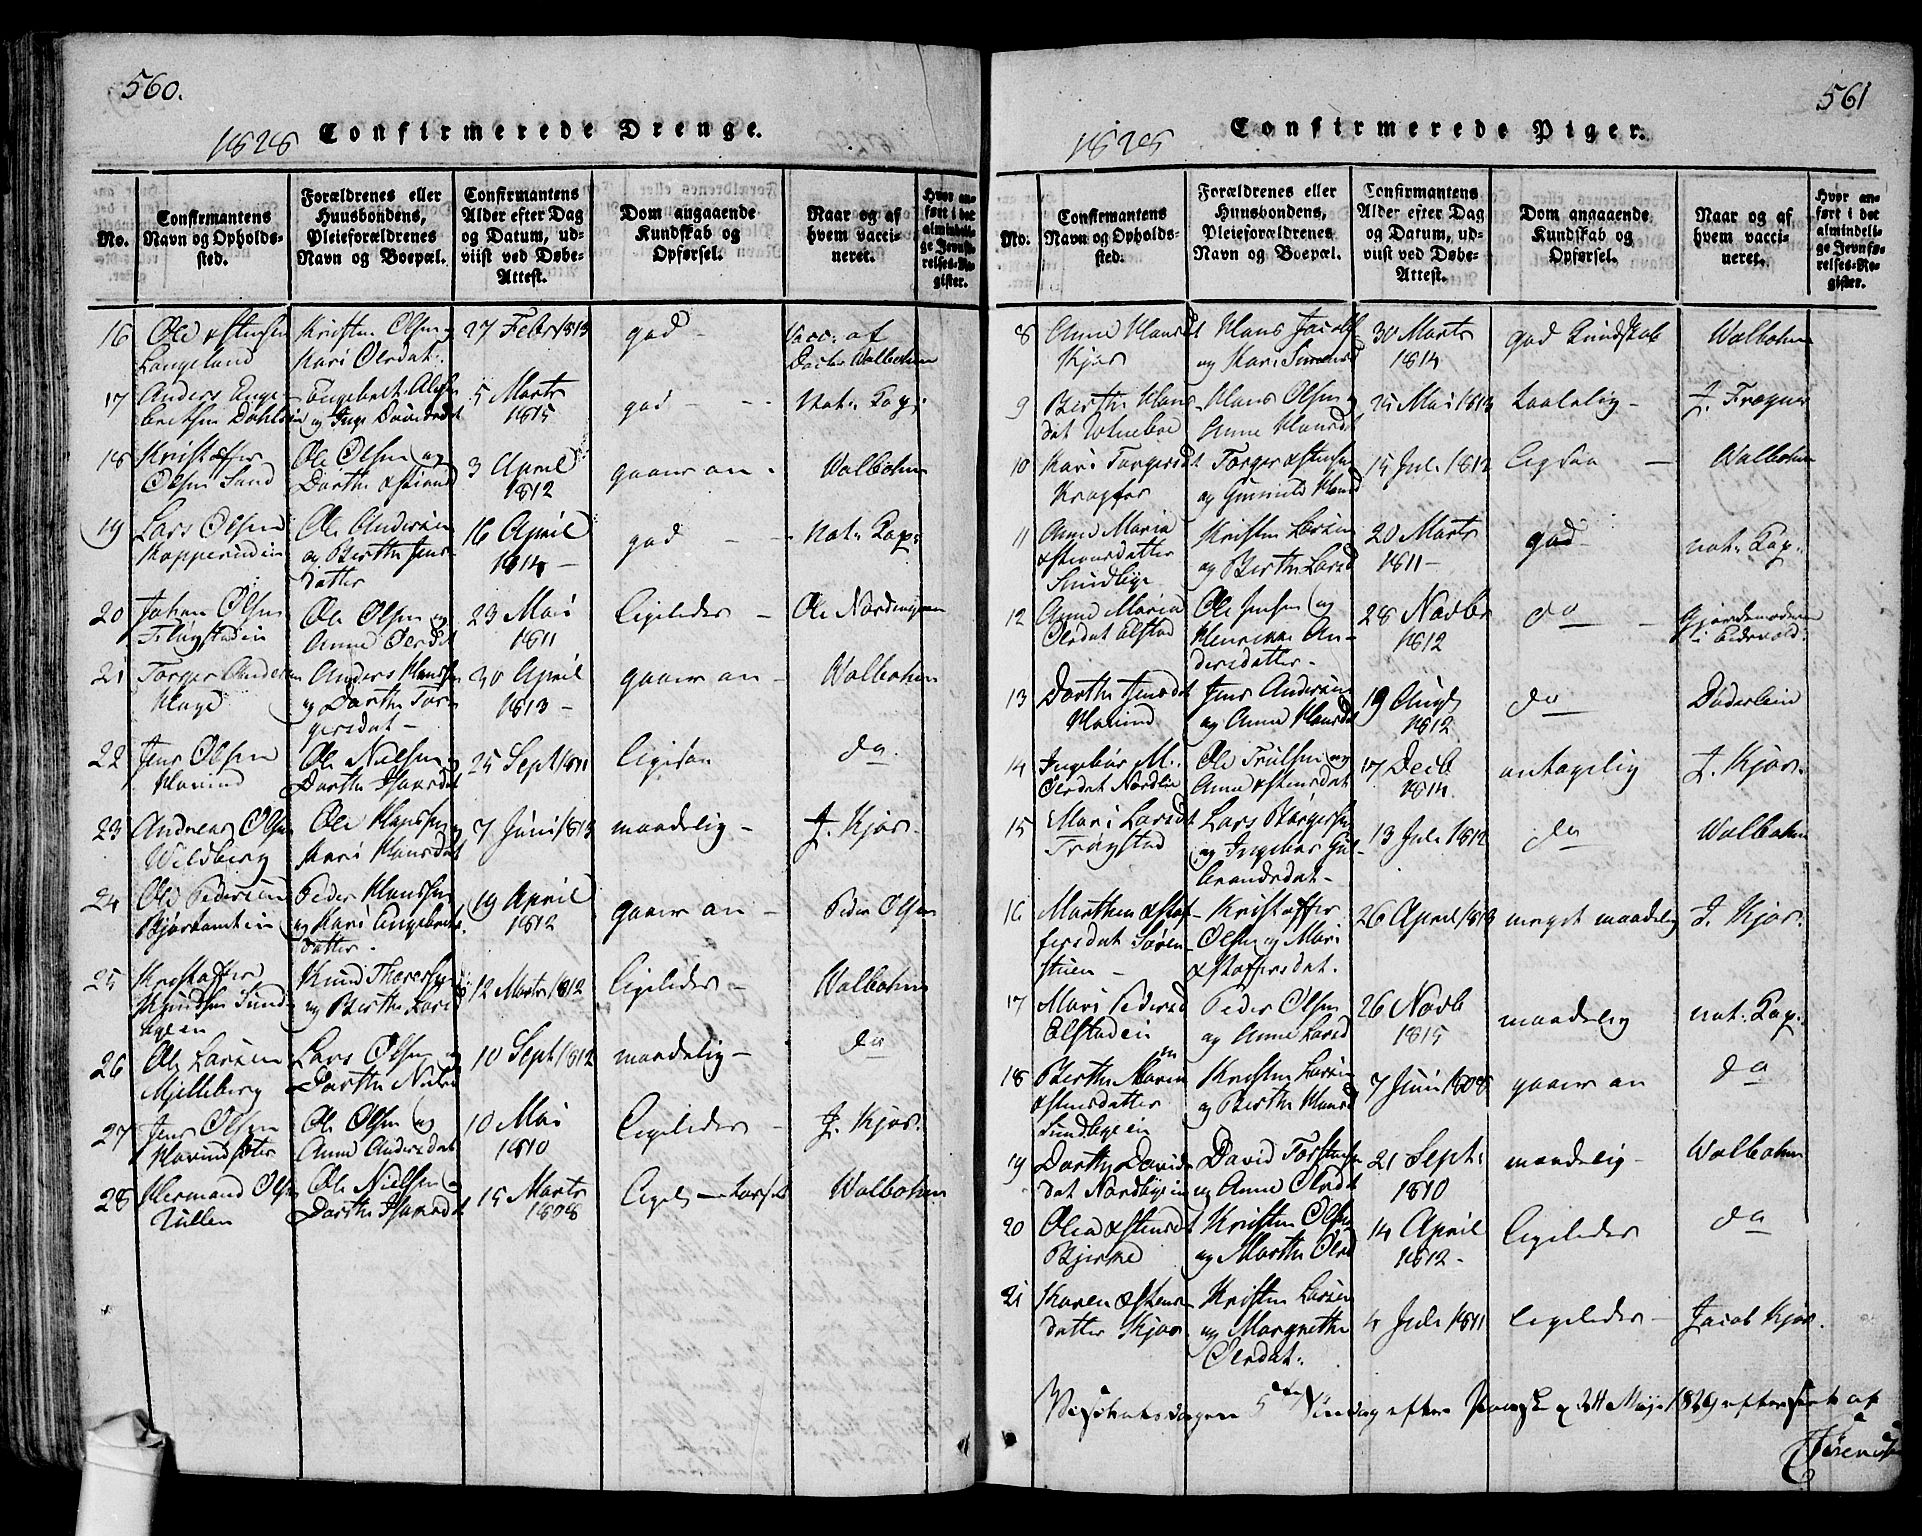 560.
1828 Confirmerede Drenge.
No.
Confirmantens
Navn og Opholds-
sted.
Forældrenes eller
Huusbondens,
Pleieforældrenes
Navn og Boepæl.
Confirmantens
Alder efter Dag
og Datum, ud-
viist ved Døbe-
Attest.
Dom angaaende
Kundskab og
Opførsel.
Naar og af
hvem vacci-
neret.
Hvor an-
ført i det
almindeli-
ge Jevnfø-
relses-Re-
gister.
16 Ole Xstensen
Langeland
Kristen Olsen og
Kari Olsdat:
27 Febr 1813
god -
Vacc: af
Docter Walbohm
17 Anders Enge-
bretsen Dahls
Engebret
og Inge
5 Marts
1815
god - -
Nat: Kop:
18 Kristoffer
Olsen Sand
Ole Olsen og
Dorthe
3 April
1812
gaaer an -
Walbohm
19 Lars Olsen
Ole Andersen
og Berthe Jens-
datter
16 April
1814 -
god - -
Nat: Kop:
20 Johan Olsen
Flugstadein
Ole Olsen og
Anne Olsdat
23 Mai
1811
ligeledes -
Ole
21 Torger Andersen
Hage
Anders Hansen
og Dorthe Tor-
gersdat -
30 April
1813 -
gaaer an -
Walbohm
22 Jens Olsen
Hovind
Ole Nielsen og
Dorthe
25 Sept 1811
ligesaa
do
23 Andreas Olsen
Wildberg
Ole Hansen og
Mari Hansdat
7 Juni 1813
maadelig -
J. Kjos.
24 Ole Pedersen
Peder Hansen
og Kari Engebrets-
datter.
19 April
1812
gaaer an -
Peder Olsen
25 Kristoffer
Knudsen Sund-
byeein
Knud
og Berthe Larsd
12 Marts 1812
ligeledes -
Walbohm
26 Ole Larsen
Mjelleberg
Lars Olsen og
Dorthe Nielsd
10 Sept 1812
maadelig -
do
27 Jens Olsen
Ole Olsen og
Anne Andersdat
10 Mai
1810
ligeledes -
J. Kjos.
28 Hermand Olsen
Tullen
Ole Nielsen og
Dorthe
15 Marts
1808
Walbohm
561
1828 Confirmerede Piger.
No.
Confirmantens
Navn og Opholds-
sted.
Forældrenes eller
Huusbondens,
Pleieforældrenes
Navn og Boepæl.
Confirmantens
Alder efter Dag
og Datum, ud-
viist ved Døbe-
Attest.
Dom angaaende
Kundskab og
Opførsel.
Naar og af
hvem vacci-
neret.
Hvor an-
ført i det
almindeli-
ge Jevnfø-
relses-Re-
gister.
8 Anne Hansdt
Kjos
Hans Jacobs
og Kari Simensd
30 Marts
1814
god Kundskab
Walbohm
9 Berthe Hans-
dat
Hans Olsen og
Anne Hansdt
25 Mai 1813
taalelig -
J. Frogner
10 Kari Torgersdt
Torger Xstensen
og Gunnild Hansd
15 Juli 1812
ligesaa -
Walbohm
11 Anne Maria
Xstensdatter
Sundbye
Kristen Larsen
og Berthe Larsd
20 Marts
1811 -
god
nat: Kop:
12 Anne Maria
Olsdat Elstad
Ole Jensen og
An-
dersdatter -
28 Novbr
1812
do
Gjordemoderen
i Eidsvold
13 Dorthe Jensdat
Hovind
Jens Andersen
og Anne Hansdat
19 Aug
1812
do
Doderlein
14 Ingebor M.
Olsdat Nordbye
Ole Trulsen og
Anne Xstensdat
17 Decb
1814
antagelig
J. Kjos.
15 Mari Larsdt
Trøgstad
Lars Børgersen
og Ingebor Gul-
brandsdat -
13 Juli 1812
do
Walbohm
16 Marthea Xstof-
fersdat Søren-
stuen -
Kristoffer
Olsen og Mari
Xstoffersdat.
26 April 1813
meget maadelig
J. Kjos.
17 Mari Pedersd
Elstadein
Peder Olsen
og Anne Larsd
26 Novb
1815
maadelig
nat: Kop:
18 Berthe Maria
Xstensdatter
Sundbyeein
Kristen Larsen
og Berthe Hansd
7 Juni 1808
gaaer an
do
19 Dorthe Davids-
dat Nordbyein
David Torstensen
og Anne Olsdt
21 Sept:
1810
maadelig -
Walbohm
20 Olea Xstensdt
Bjerke
Kristen Olsen
og Marthe Olsd
14 April
1812 -
ligeledes
do
21 Karen Xstens-
datter Kjos
Kristen Larsen
og Margrethe
Olsdat:
4 Juli 1811
ligeledes -
Jacob Kjos.
Visitatsdagen 5te Søndag efter Paaske d 24 Maj 1829 efterseet af
Sørenssen